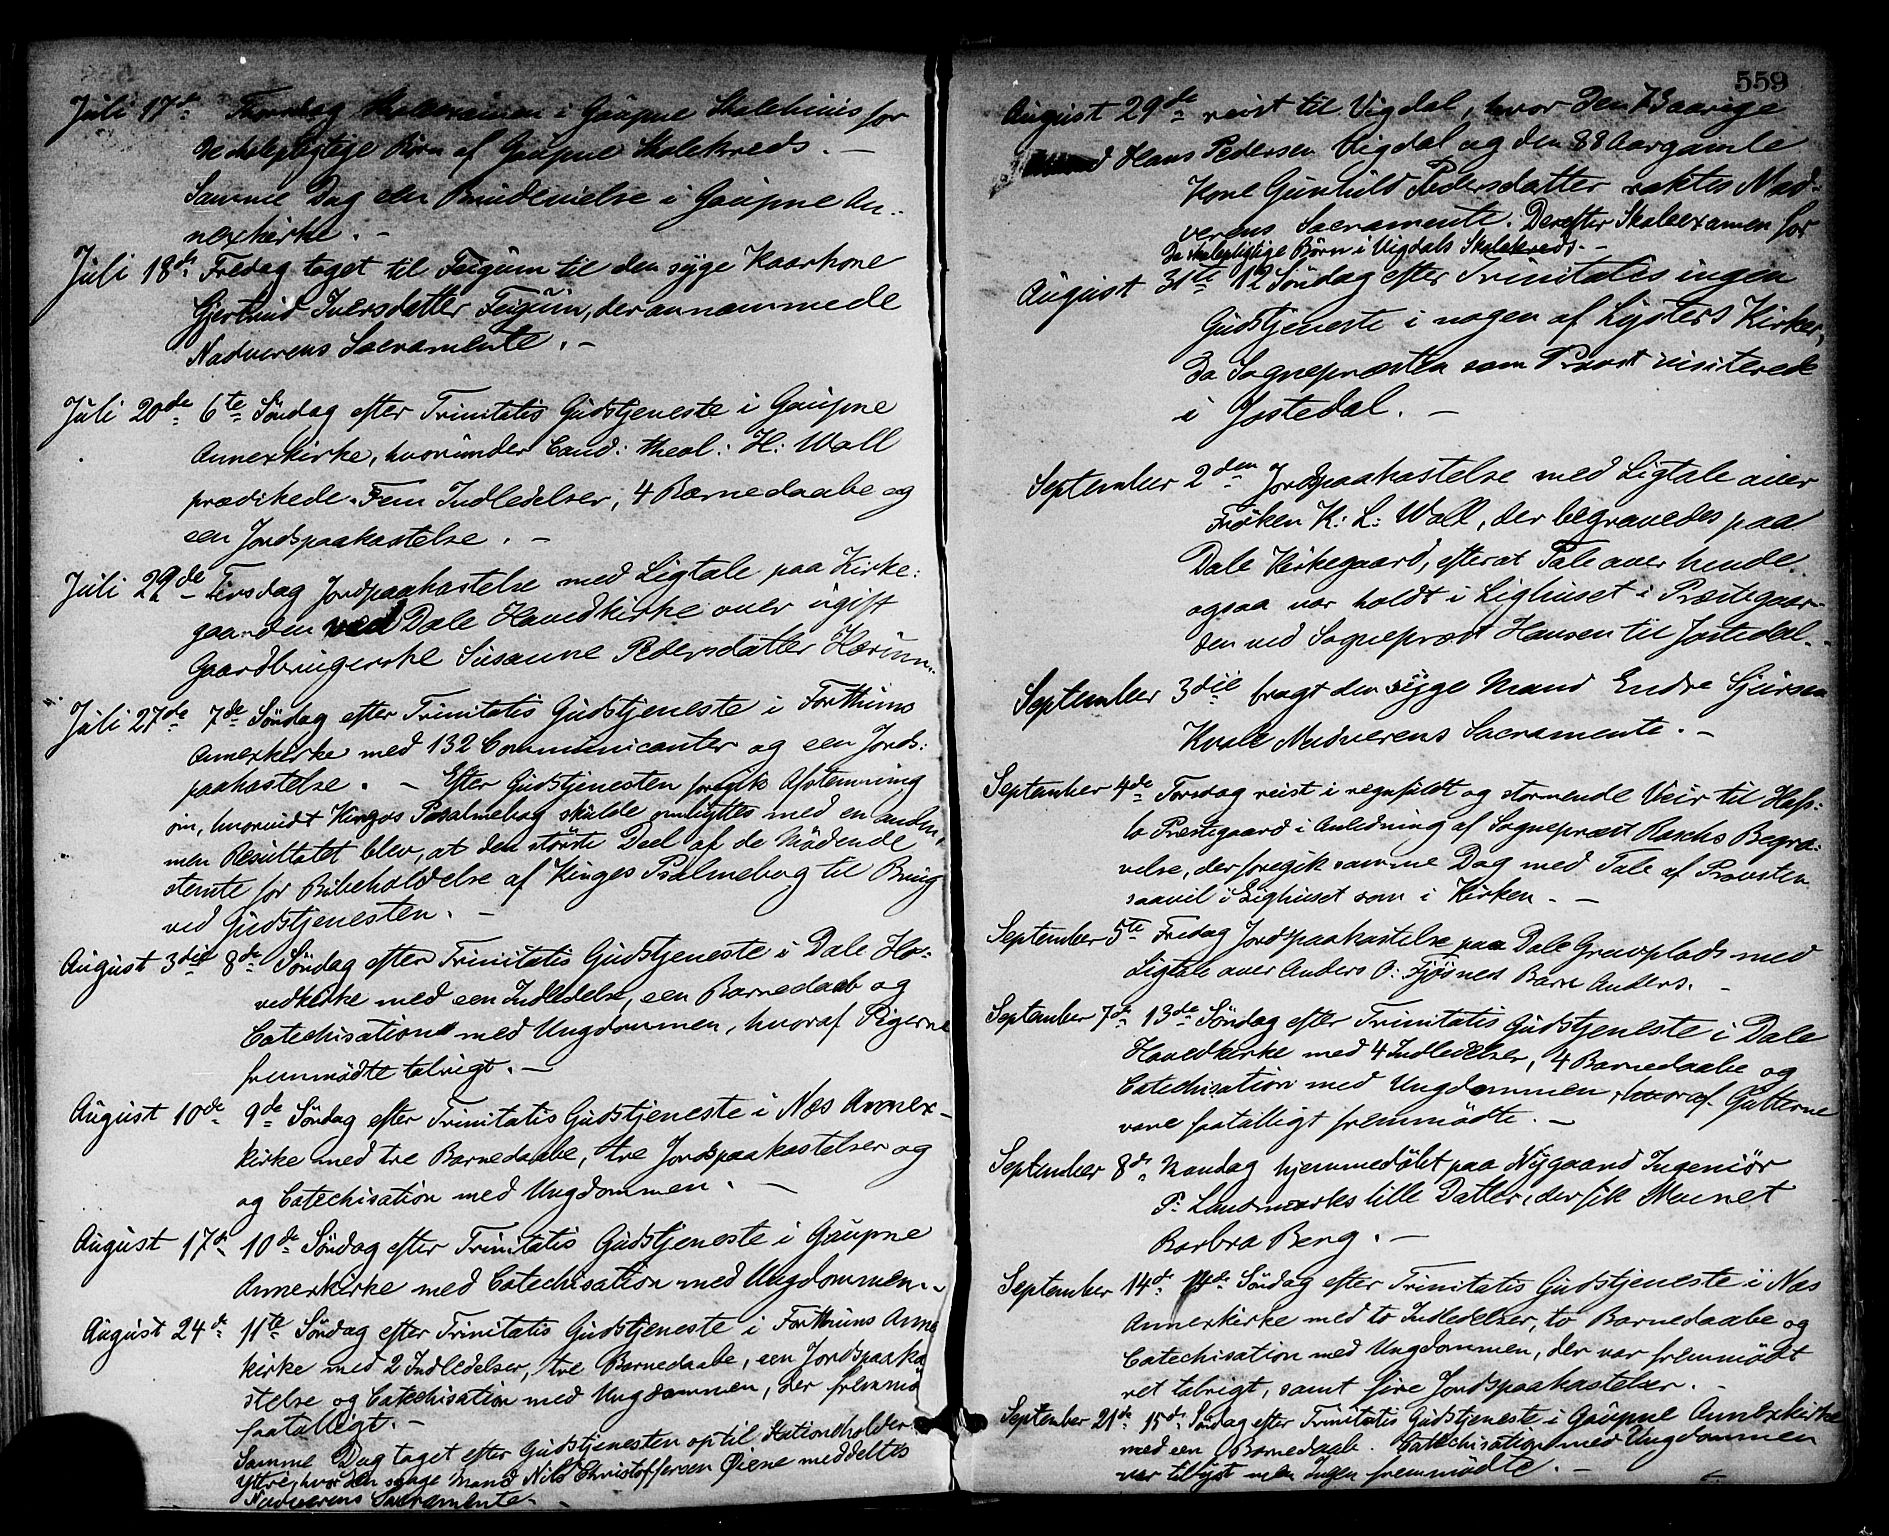 Juli 17de Torsdag Skoleexamen i Gaupne Skolehuus for
de skolepligtige Børn af Gaupne Skolekreds. –
Samme Dag een Brudevielse i Gaupne An-
nexkirke. –
Juli 18de Fredag taget til Feigum til den syge Kaarkone
Gjertrud Iversdatter Feigum, der annammede
Nadverens Sacramente. –
Juli 20de 6te Søndag efter Trinitatis Gudstjeneste i Gaupne
Annexkirke, hvorunder Cand: theol: H: Wall
prædikede. Fem Indledelser, 4 Barnedaabe og
een Jordspaakastelse. –
Juli 22de Tirsdag Jordpaakastelse med Ligtale paa Kirke:
gaarden ved Dale Hovedkirke over ugift
Gaardbrugerske Susanne Pedersdatter Hærum.
Juli 27de 7de Søndag efter Trinitatis Gudstjeneste i Forthuns
Annexkirke med 132 Communicanter og een Jords:
paakastelse. – Efter Gudstjenesten foregik Afstemning
om, hvorvidt Kingos Psalmebog skulde ombyttes med en anden,
men Resultatet blev, at den største Deel af de Mødende
stemte for Bibeholdelse af Kingos Psalmebog til Brug
ved Gudstjenesten. –
August 3die 8de Søndag efter Trinitatis Gudstjeneste i Dale Ho-
vedkirke med een Indledelse, een Barnedaab og
Catechisation med Ungdommen, hvoraf Pigerne
fremmødte talrigt. –
August 10de 9de Søndag efter Trinitatis Gudstjeneste i Næs Annex-
kirke med tre Barnedaabe, tre Jordspaakastelser og
og Catechisation med Ungdommen. –
August 17de 10de Søndag efter Trinitatis Gudstjeneste i Gaupne
Annexkirke med Catechisation med Ungdommen. –
August 24de 11te Søndag efter Trinitatis Gudstjeneste i Forthuns Anne
kirke med 2 Indledelser, tre Barnedaabe, een Jordspaaka
stelse og Catechisation med Ungdommen, der fremmø
faatalligt. –
Samme Dag taget efter Gudstjenesten op til Stationsholder
Yttri, hvor den syge Mand Nils Christoffersen Øiene meddeltes
Nadverens Sacramente. –
559
August 29de reist til Vigdal, hvor den 73aarige
Mand Hans Pedersen Vigdal og den 88 Aargamle
Kone Gunhild Pedersdatter raktes Nad-
verens Sacramente. Derefter Skoleexamen for
de skolepligtige Børn i Vigdals Skolekreds. –
August 31te 12 Søndag efter Trinitatis ingen
Gudstjeneste i nogen af Lysters Kirker,
da Sognepræsten som Provst visiterede
i Jostedal. –
September 2den Jordspaakastelse med Ligtale over
Frøken K: L: Wall, der begravedes paa
Dale Kirkegaard, efterat Tale over hende
ogsaa var holdt i Lighuset i Præstegaar-
den ved Sognepræst Hansen til Jostedal. –
September 3die bragt den syge Mand Endre Sjursen
Kvale Nadverens Sacramente. –
September 4de Torsdag reist i regnfuldt og stormende Veir til Haf:
lo Præstegaard i Anledning af Sognepræst Raschs Begra:
velse, der foregik samme Dag med Tale af Provsten
saavel i Lighuset som i Kirken. –
September 5te Fredag Jordspaakastelse paa Dale Gravplads med
Ligtale over Anders O: Fjøsnes Barn Anders. –
September 7de 13de Søndag efter Trinitatis Gudstjeneste i Dale
Hovedkirke med 4 Indledelser, 4 Barnedaabe og
Catechisation med Ungdommen, hvoraf Gutterne
vare faatalligt fremmødte. –
September 8de Mandag hjemmedøbt paa Nygaard Ingeniør
P: Landmarks lille Datter, der fik Navnet
Barbra Berg. –
September 14de 14de Søndag efter Trinitatis Gudstjeneste i Næs
Annexkirke med to Indledelser, to Barnedaabe og
Catechisation med Ungdommen, der var fremmødt
ret talrigt, samt fire Jordspaakastelser. –
September 21de 15de Søndag efter Trinitatis Gudstjeneste i Gaupne Annexkirke
med een Barnedaab. Catechisation med Ungdommen
var tillyst men Ingen fremmødte. –